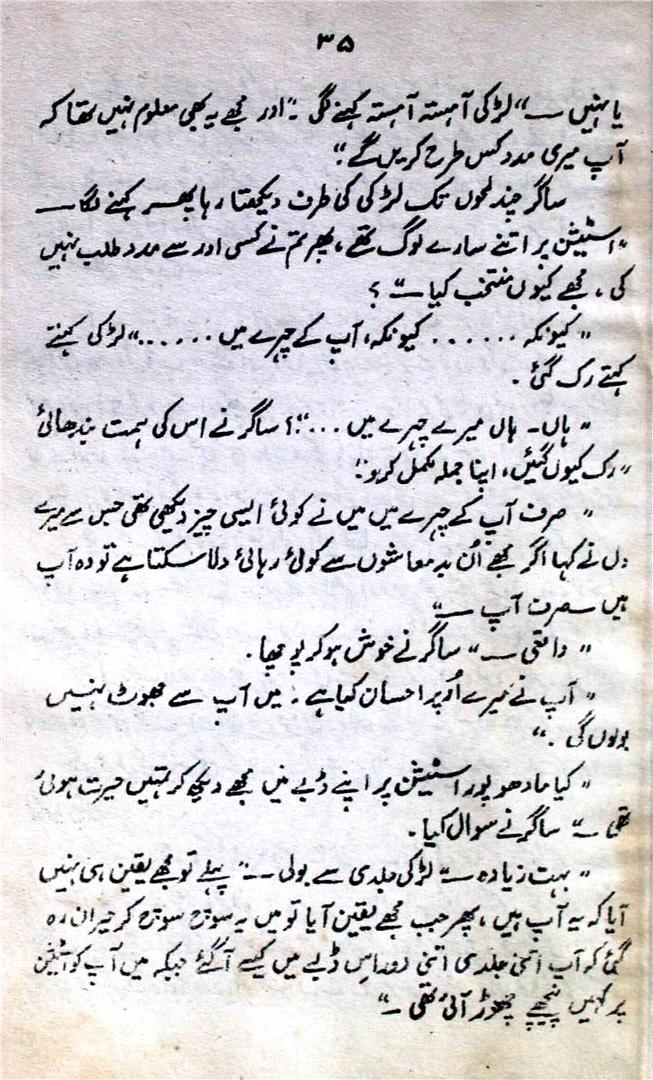 ۳۵
یا نہیں ــ" لڑکی آہستہ آہستہ کہنے لگی۔ "اور مجھے یہ بھی معلوم نہیں تھا کہ
آپ میری مدد کس طرح کریں گے"
ساگر چند لمحوں تک لڑکی کی طرف دیکھتا رہا پھر کہنے لگا ــ
"اسٹیشن پر اتنے سارے لوگ تھے، پھر تم نے کسی اور سے مدد طلب نہیں
کی، مجھے کیوں منتخب کیا ــ" ؟
"کیونکہ ...... کیونکہ، آپ کے چہرے میں ......" لڑکی کہتے
کہتے رک گئی۔
"ہاں۔ ہاں میرے چہرے میں ..."؟ ساگر نے اس کی ہمت بندھائی
"رک کیوں گئیں، اپنا جملہ مکمل کرو"
"صرف آپ کے چہرے میں میں نے کوئی ایسی چیز دیکھی تھی جس سے میرے
دل نے کہا اگر مجھے اُن بدمعاشوں سے کوئی رہائی دلا سکتا ہے تو وہ آپ
ہیں ــ صرف آپ ــ"
"واقعی ــ" ساگر نے خوش ہو کر پوچھا۔
"آپ نے میرے اُوپر احسان کیا ہے۔ میں آپ سے جھوٹ نہیں
بولوں گی۔"
"کیا مادھو پور اسٹیشن پر اپنے ڈبے میں مجھے دیکھ کر تمہیں حیرت ہوئی
تھی ــ" ساگر نے سوال کیا۔
"بہت زیادہ ــ" لڑکی جلدی سے بولی ــ "پہلے تو مجھے یقین ہی نہیں
آیا کہ یہ آپ ہیں، پھر جب مجھے یقین آیا تو میں یہ سوچ سوچ کر حیران رہ
گئی کہ آپ اتنی جلدی اتنی دور اس ڈبے میں کیسے آ گئے جبکہ میں آپ کو اسٹیشن
پر کہیں پیچھے چھوڑ آئی تھی ــ"